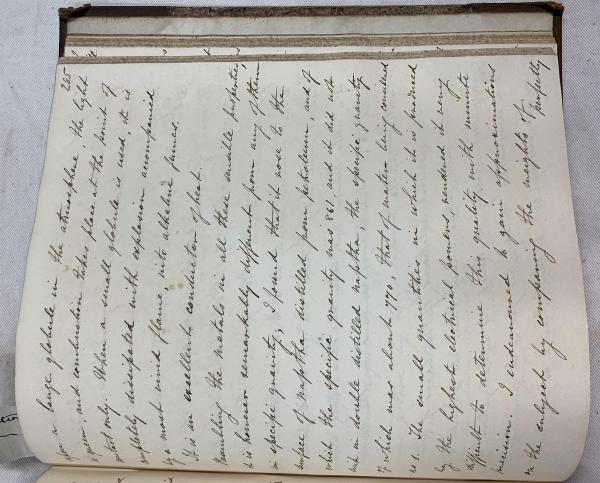 285
upon a large globule in the atmosphere, the light
is green, and combustion takes place at the point of
contact only. When a small globule is used, it is
completely dissipated with explosion accompanied
by a most vivid flame, into alkaline fumes.
It is an excellent conductor of heat.
Resembling the metals in all these sensible properties,
it is however remarkably different from any of them
in specific gravity; I found that it rose to the
surface of naptha distilled from petroleum, and of
which the specific gravity was 861 and it did not
sink in double distilled naptha, the specific gravity
of which was about 770, that of water being considered
as 1. The small quantities in which it is produced
by the highest electrical powers, rendered it very
difficult to determine this quality with minute
precision. I endeavoured to gain approximations
on the subject by comparing the weights of
perfectly